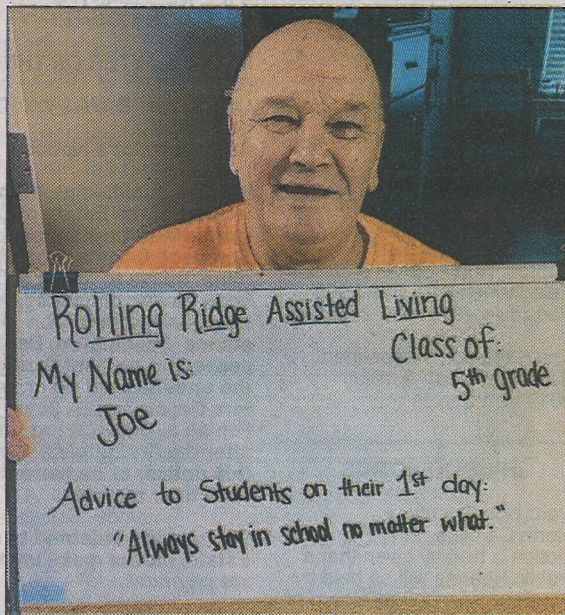 Rolling Ridge Assisted Living
My Name is:
Joe
Class of:
5th grade
Advice to Students on their 1st day:
"Always stay in school no matter what."